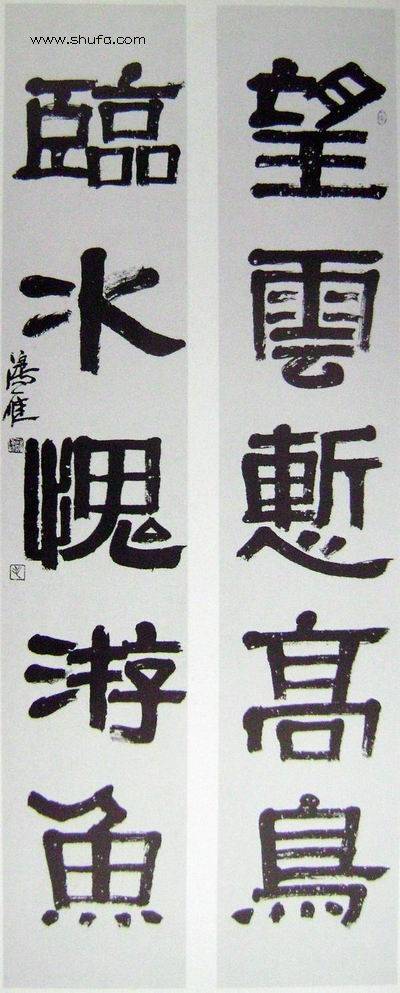 www.shufa.com
望雲慙高鳥
臨水愧游魚
鴻雁